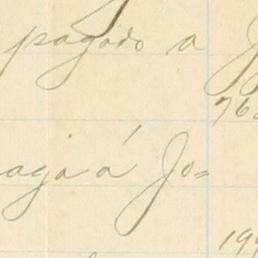 pagado a J
76
aga á Jo=
199